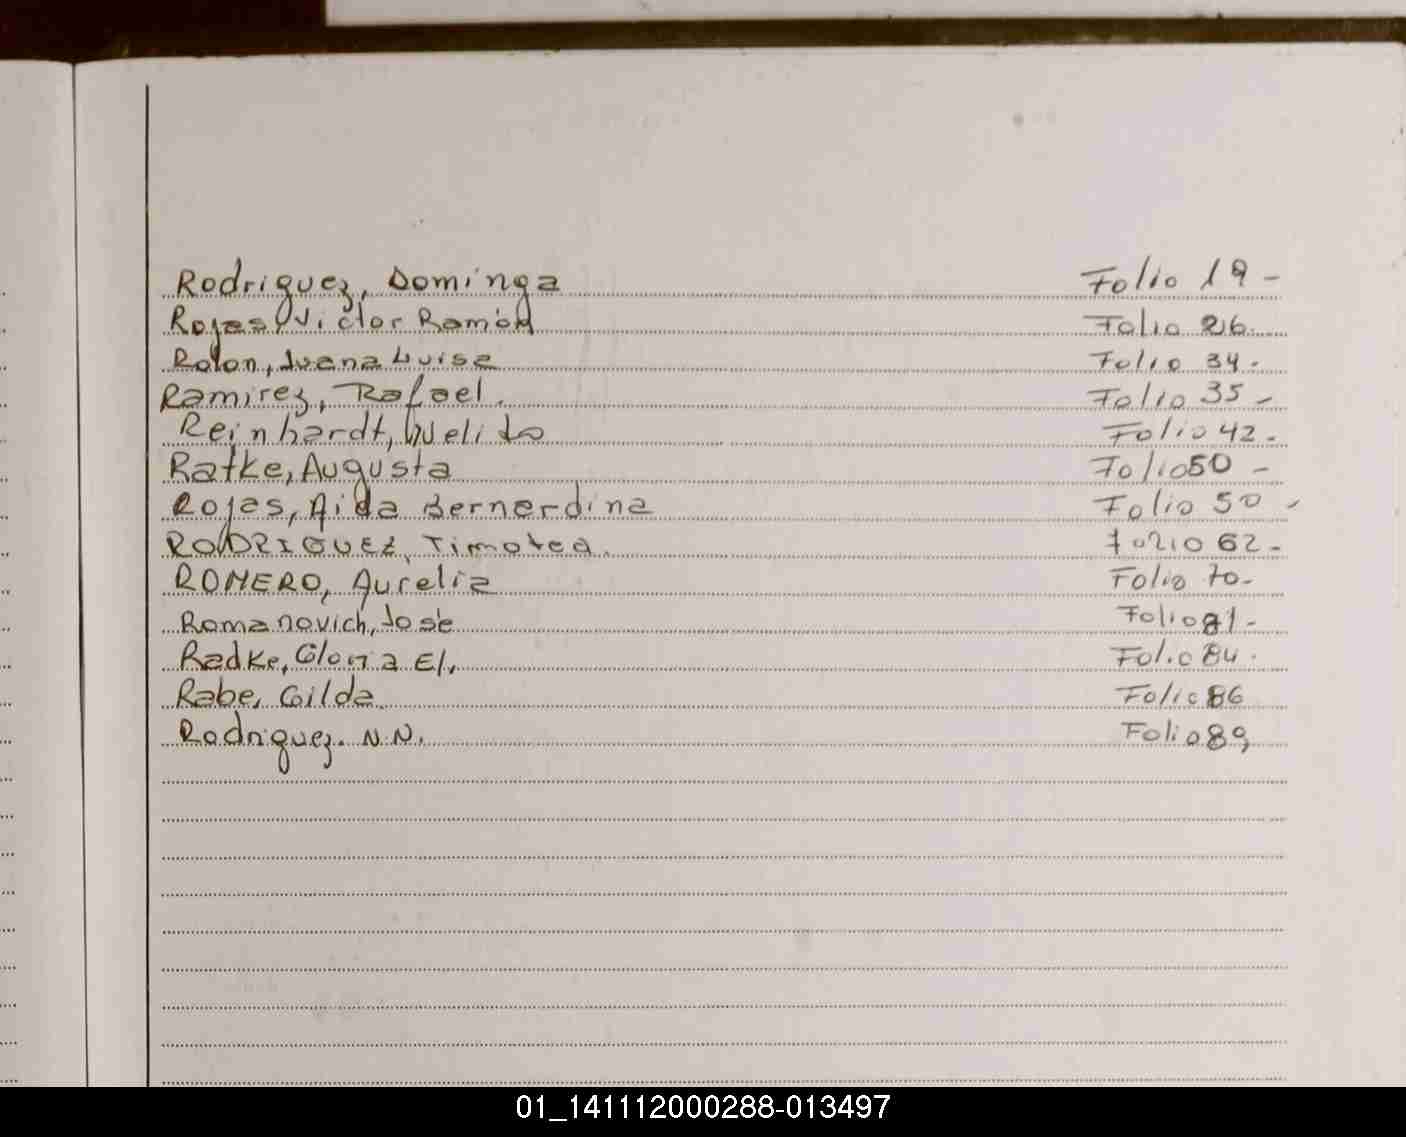 Rodriguez, Dominga Folio 19 -
Rojas, Victor Ramón Folio 26.
Rolon, Juana Luisa Folio 34.
Ramirez, Rafael. Folio 35 -
Reinhardt, Welito Folio 42 -
Ratke, Augusta Folio 50 -
Rojas, Aida Bernardina Folio 50 -
RODRIGUEZ, Timotea. Folio 62 -
ROMERO, Aurelia Folio 70 -
Romanovich, José Folio 81 -
Radke, Gloria El. Folio 84.
Rabe, Gilda. Folio 86
Rodriguez. N.N. Folio 89
01_141112000288-013497